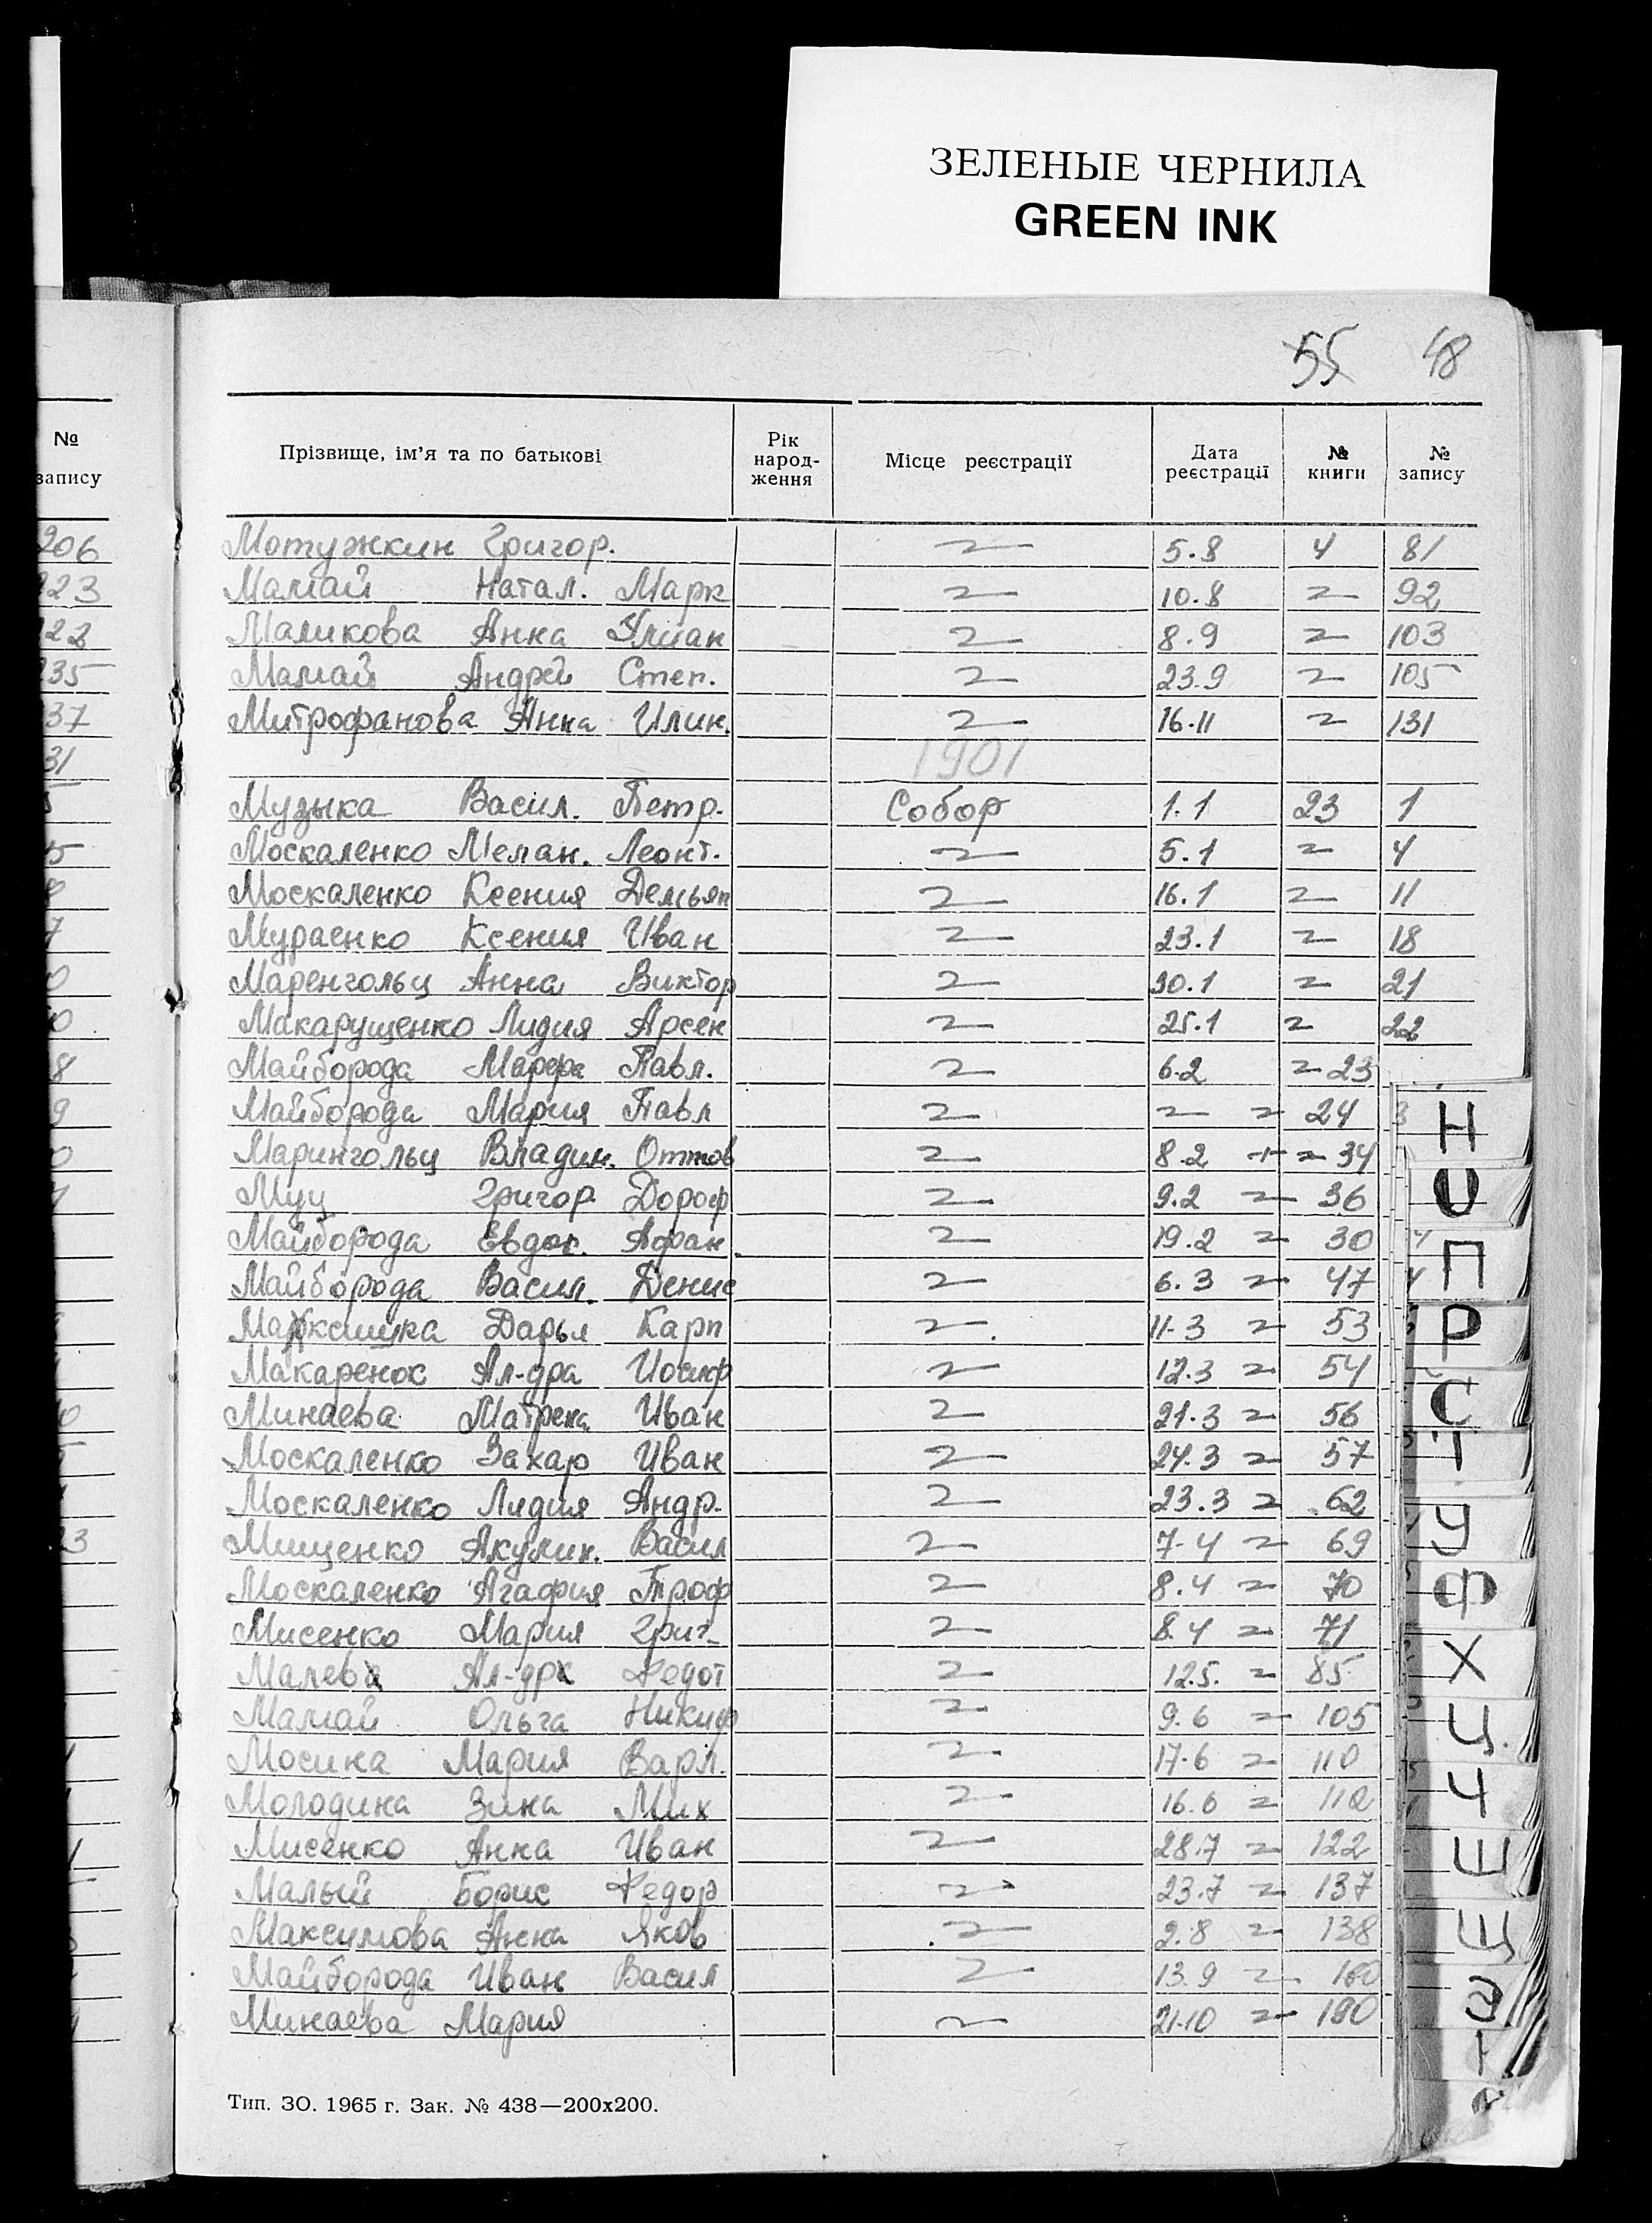 ЗЕЛЕНЫЕ ЧЕРНИЛА
GREEN INK
55 48
№ запису
Прізвище, ім'я та по батькові Рік народження Місце реєстрації Дата реєстрації № книги № запису
206
Мотужкин Григор. 〃 5.8 4 81
Мамай Натал. Марк 〃 10.8 〃 92
Маликова Анна Улиан 〃 8.9 〃 103
Мамай Андрей Степ. 〃 23.9 〃 105
Митрофанова Анна Илин. 〃 16.11 〃 131
1901
Музыка Васил. Петр. Собор 1.1 23 1
Москаленко Мелан. Леонт. 〃 5.1 〃 4
Москаленко Ксения Демьян 〃 16.1 〃 11
Мураенко Ксения Иван 〃 23.1 〃 18
Маренгольц Анна Виктор 〃 30.1 〃 21
Макарущенко Лидия Арсен 〃 25.1 〃 22
Майборода Марфа Павл. 〃 6.2 〃 23
Майборода Мария Павл 〃 〃 〃 24
Марингольц Владим. Оттов 〃 8.2 〃 34
Муц Григор Дороф 〃 9.2 〃 36
Майборода Евдок. Афан. 〃 19.2 〃 30
Майборода Васил. Денис 〃 6.3 〃 47
Дарья Карп 〃 11.3 〃 53
Макаренок Ал-дра Иосиф 〃 12.3 〃 54
Минаева Матрена Иван 〃 21.3 〃 56
Москаленко Захар Иван 〃 24.3 〃 57
Москаленко Лидия Андр. 〃 23.3 〃 62
Мищенко Акулин. Васил 〃 7.4 〃 69
Москаленко Агафия Троф 〃 8.4 〃 70
Мисенко Мария Григ. 〃 8.4 〃 71
Малев Ал-др Федот 〃 12.5. 〃 85
Мамай Ольга Никиф 〃 9.6 〃 105
Мосина Мария Варл. 〃 17.6 〃 110
Молодина Зина Мих 〃 16.6 〃 112
Мисенко Анна Иван 〃 28.7 〃 122
Малый Борис Федор 〃 23.7 〃 137
Максимова Анна Яков 〃 2.8 〃 138
Майборода Иван Васил 〃 13.9 〃 160
Минаева Мария 〃 21.10 〃 190
Тип. ЗО. 1965 г. Зак. № 438—200х200.
Н
О
П
Р
С
Т
У
Ф
Х
Ц
Ч
Ш
Щ